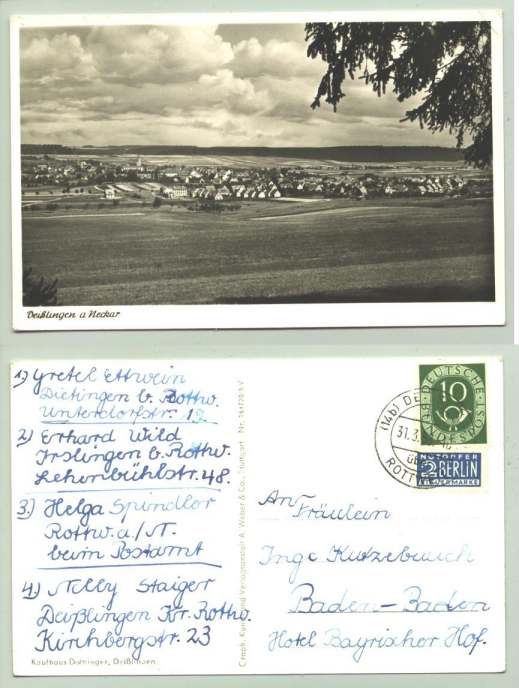 Deißlingen a Neckar
1) Gretel Ettwein
Dietingen b. Rottw.
Unterdorfstr. 19
2) Erhard Wild
Irslingen b. Rottw.
Lehenbühlstr. 48.
3) Helga Spindler
Rottw. a./N.
beim Postamt
4) Nelly Staiger
Deißlingen Kr. Rottw.
Kirchbergstr. 23
Kaufhaus Dettinger, Deißlingen
Graph. Kunst- und Verlagsanstalt A. Weber & Co., Stuttgart Nr.
DEUTSCHE
10
BUNDESPOST
(14b) DE
31.3.
ROTTW
NOTOPFER
2 BERLIN
STEUERMARKE
An
Fräulein
Inge Kutzebauch
Baden-Baden
Hotel Bayrischer Hof.